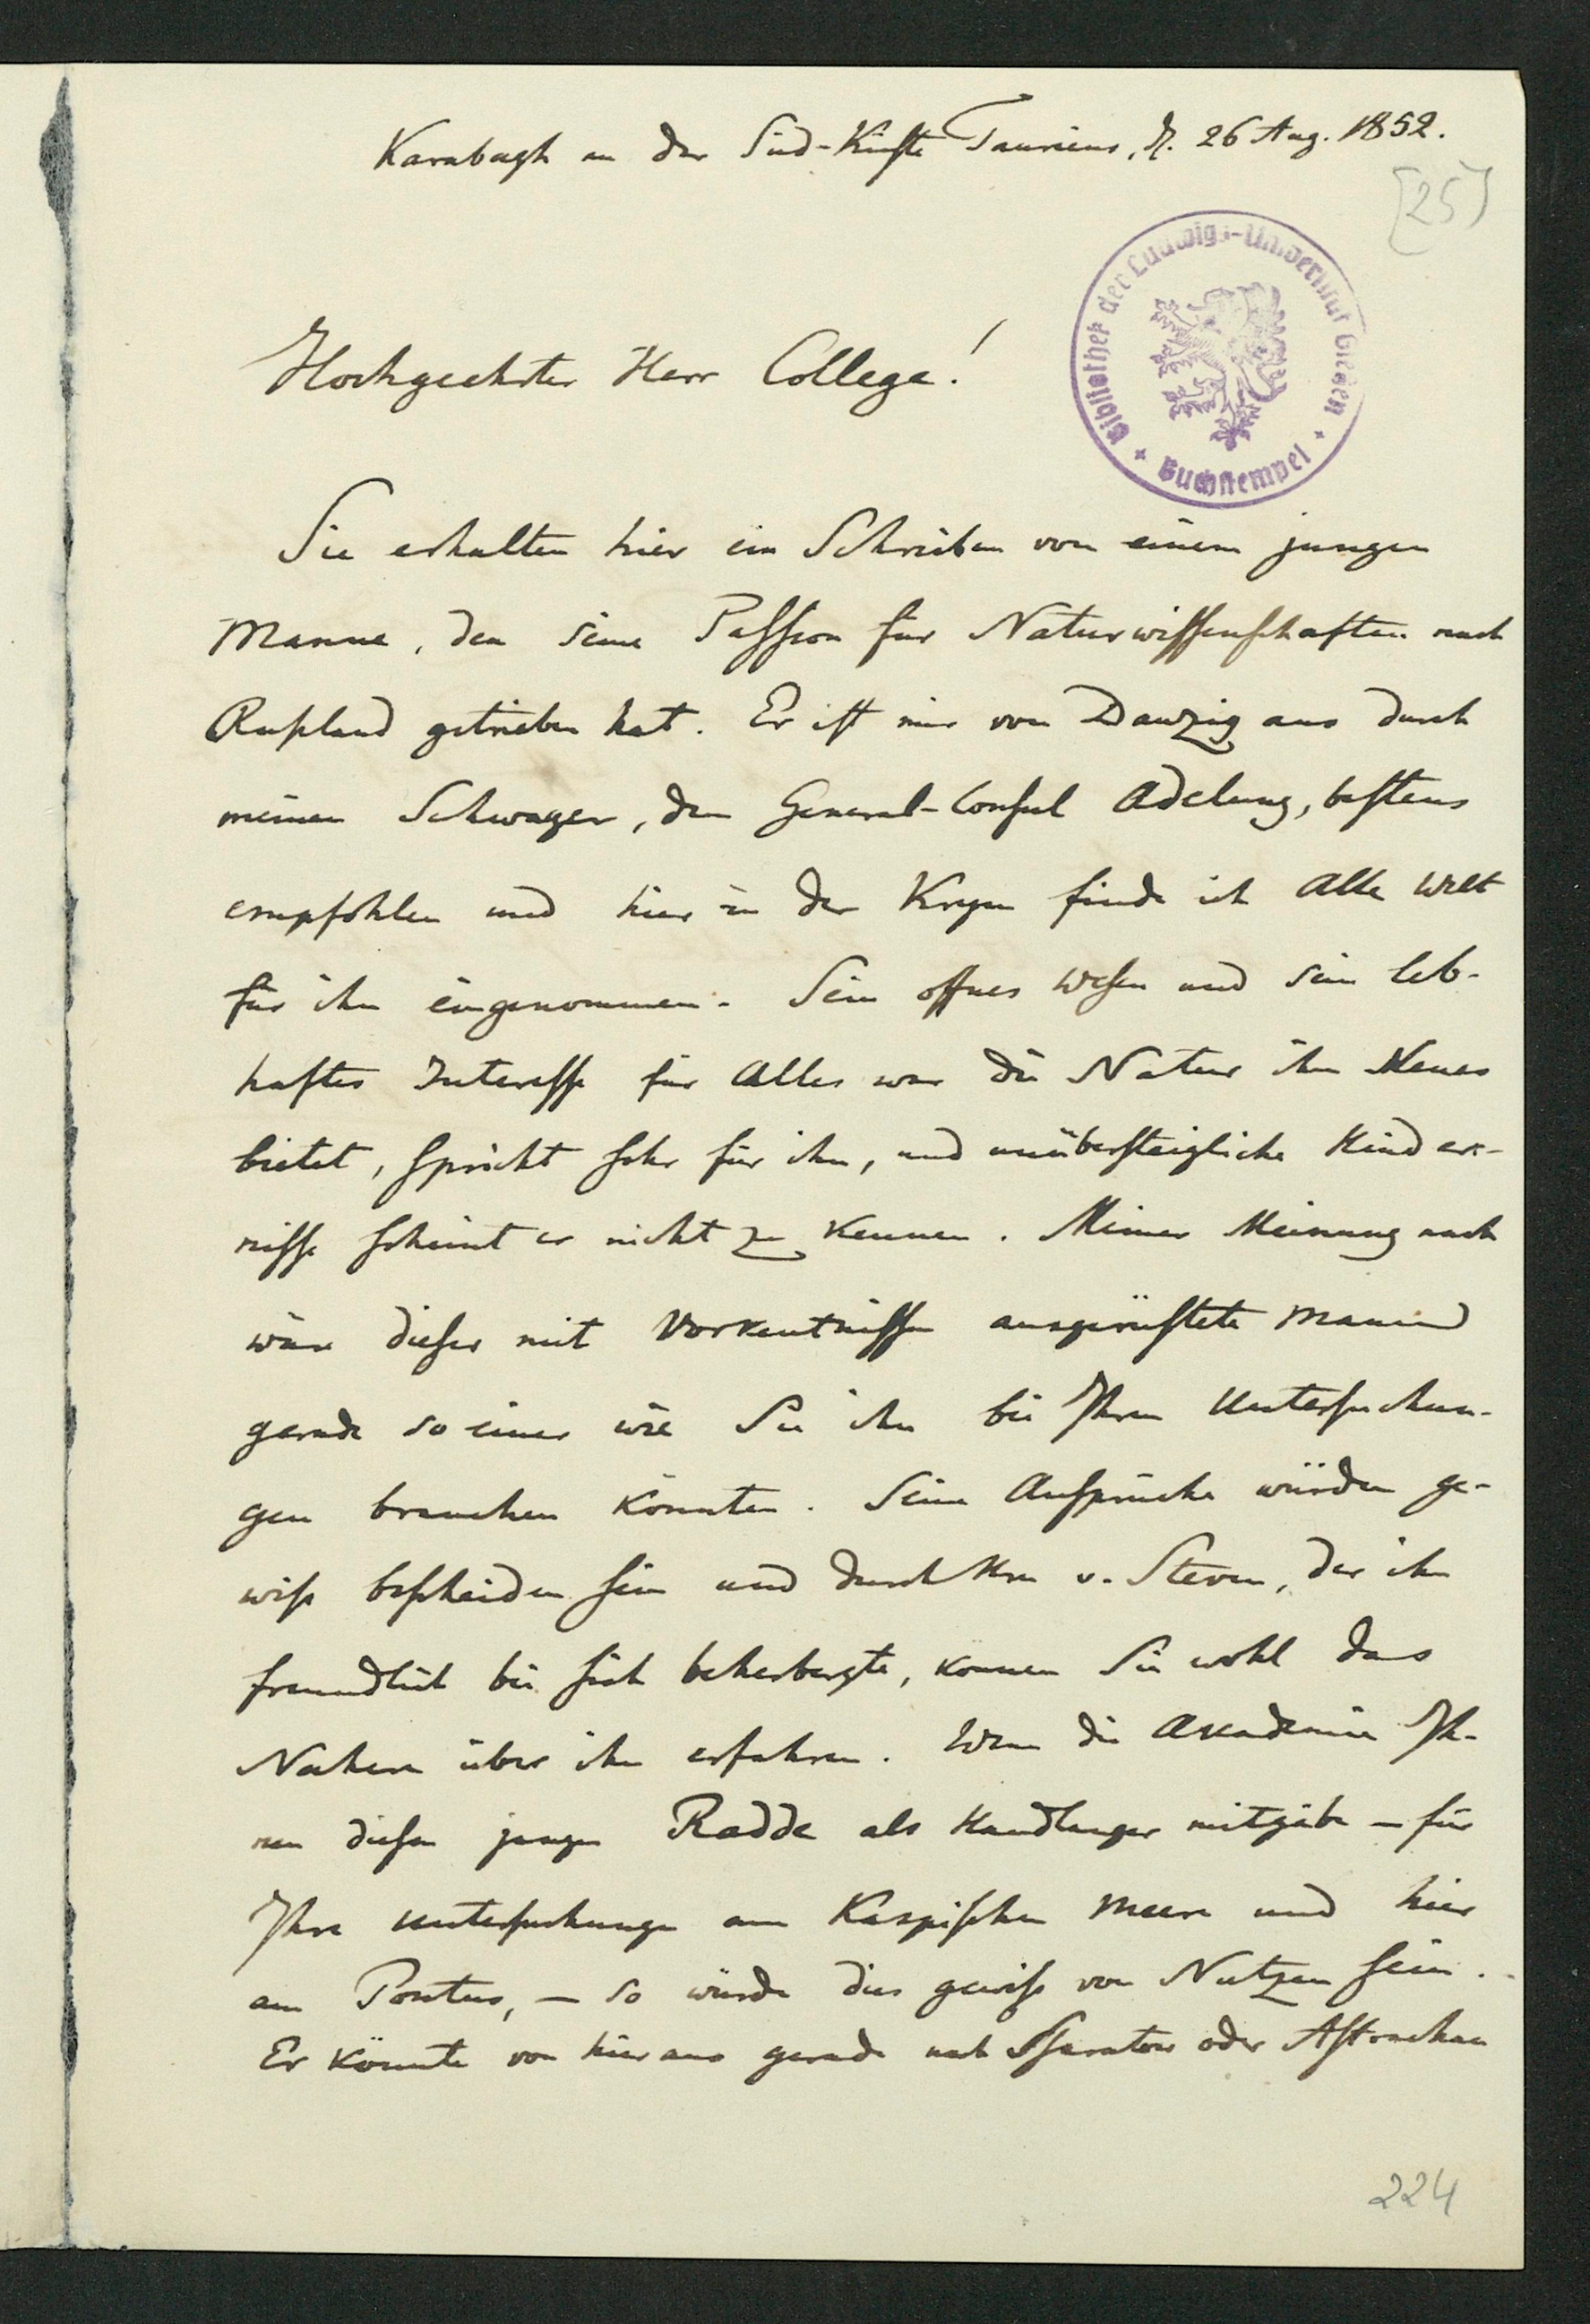 Karabagh an der Süd-Küste Tauriens, d. 26 Aug. 1852.
[25]
Bibliothek der Ludwigs-Universität Giessen
Buchstempel
Hochgeehrter Herr College!
Sie erhalten hier ein Schreiben von einem jungen
Manne, den seine Passion für Naturwissenschaften nach
Rußland getrieben hat. Er ist mir von Danzig aus durch
meinen Schwager, den General-Consul Adelung, bestens
empfohlen und hier in der Krym finde ich Alle Welt
für ihn eingenommen. Sein offnes Wesen und sein leb-
haftes Interesse für Alles was die Natur ihm Neues
bietet, spricht sehr für ihn, und unübersteigliche Hinder-
nisse scheint er nicht zu kennen. Meiner Meinung nach
wäre dieser mit Vorkentnissen ausgerüstete Mann
gerade so einer wie Sie ihn bei Ihren Untersuchun-
gen brauchen könnten. Seine Ansprüche würden ge-
wiß bescheiden sein und durch Hrn v. Steven, der ihn
freundlich bei sich beherbergte, können Sie wohl das
Nähere über ihn erfahren. Wenn die Akademie Ih-
nen diesen jungen Radde als Handlanger mitgäbe – für
Ihre Untersuchungen am Kaspischen Meere und hier
am Pontus, – so würde dies gewiß von Nutzen sein.
Er könnte von hier aus gerade nach Ssaratow oder Astrachan
224